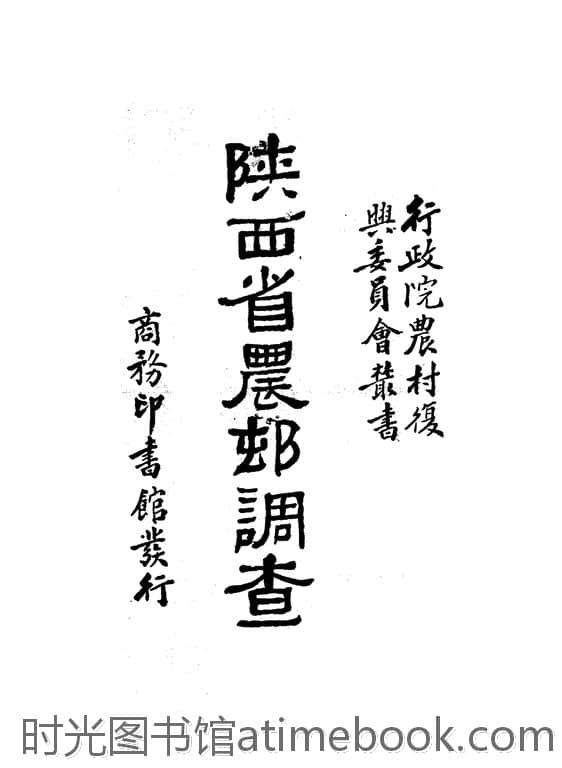 行政院農村復
興委員會叢書
陝西省農邨調查
商務印書館發行
时光图书馆atimebook.com